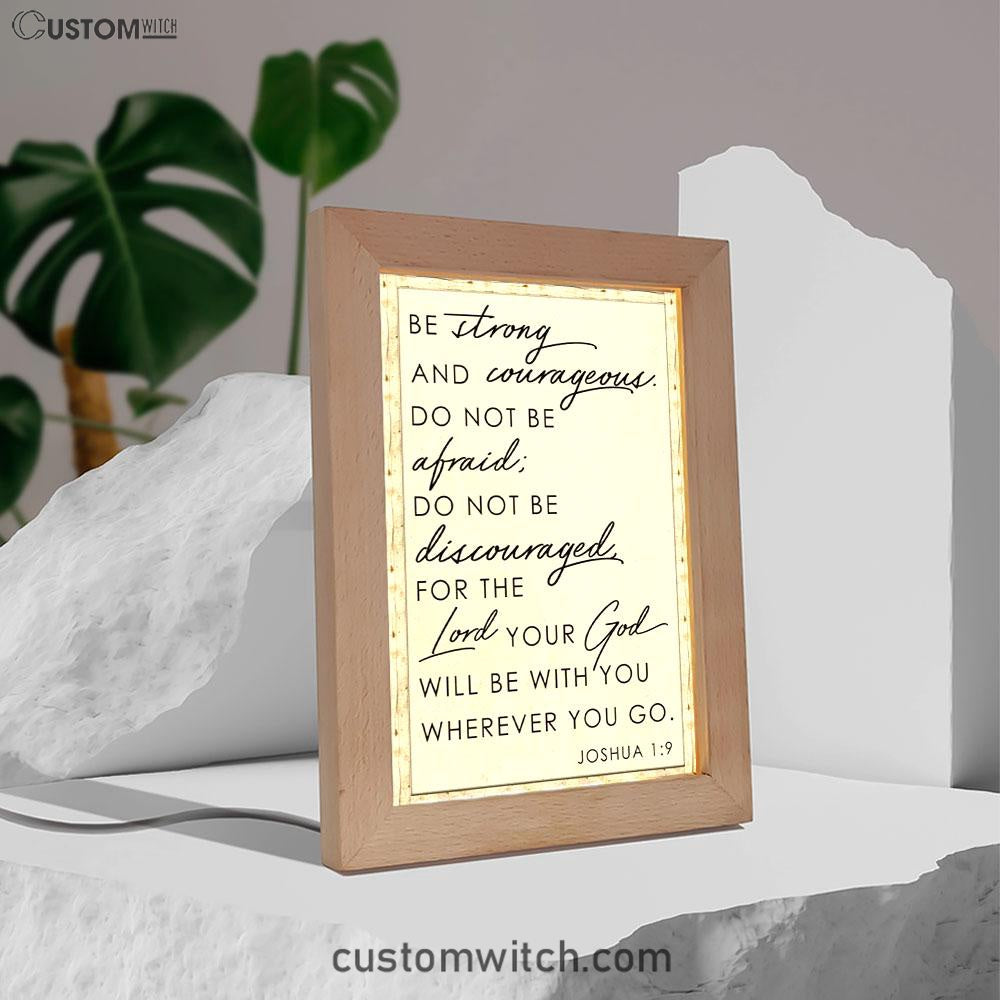 CUSTOMWITCH
BE strong
AND courageous.
DO NOT BE
afraid;
DO NOT BE
discouraged,
FOR THE
Lord YOUR God
WILL BE WITH YOU
WHEREVER YOU GO.
JOSHUA 1:9
customwitch.com